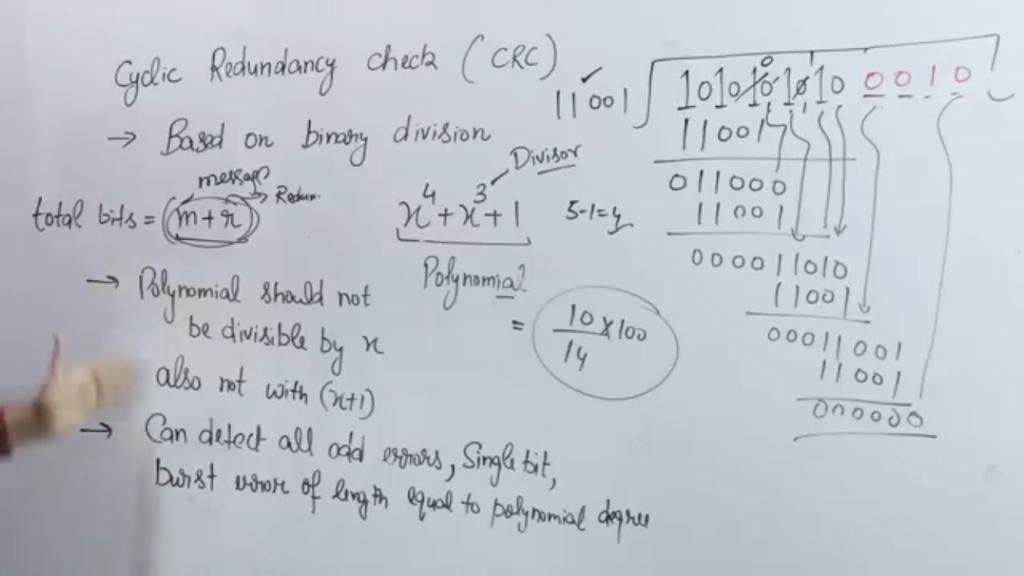 Cyclic Redundancy check (CRC)
→ Based on binary division
message
Redun.
total bits = m+r
Divisor
x⁴+x³+1
5-1=4
Polynomial
→ Polynomial should not
be divisible by x
also not with (x+1)
= 10/14 × 100
→ Can detect all odd errors, Single bit,
burst error of length equal to polynomial degree
11001
1010101010 0010
11001
011000
11001
000011010
11001
00011001
11001
000000